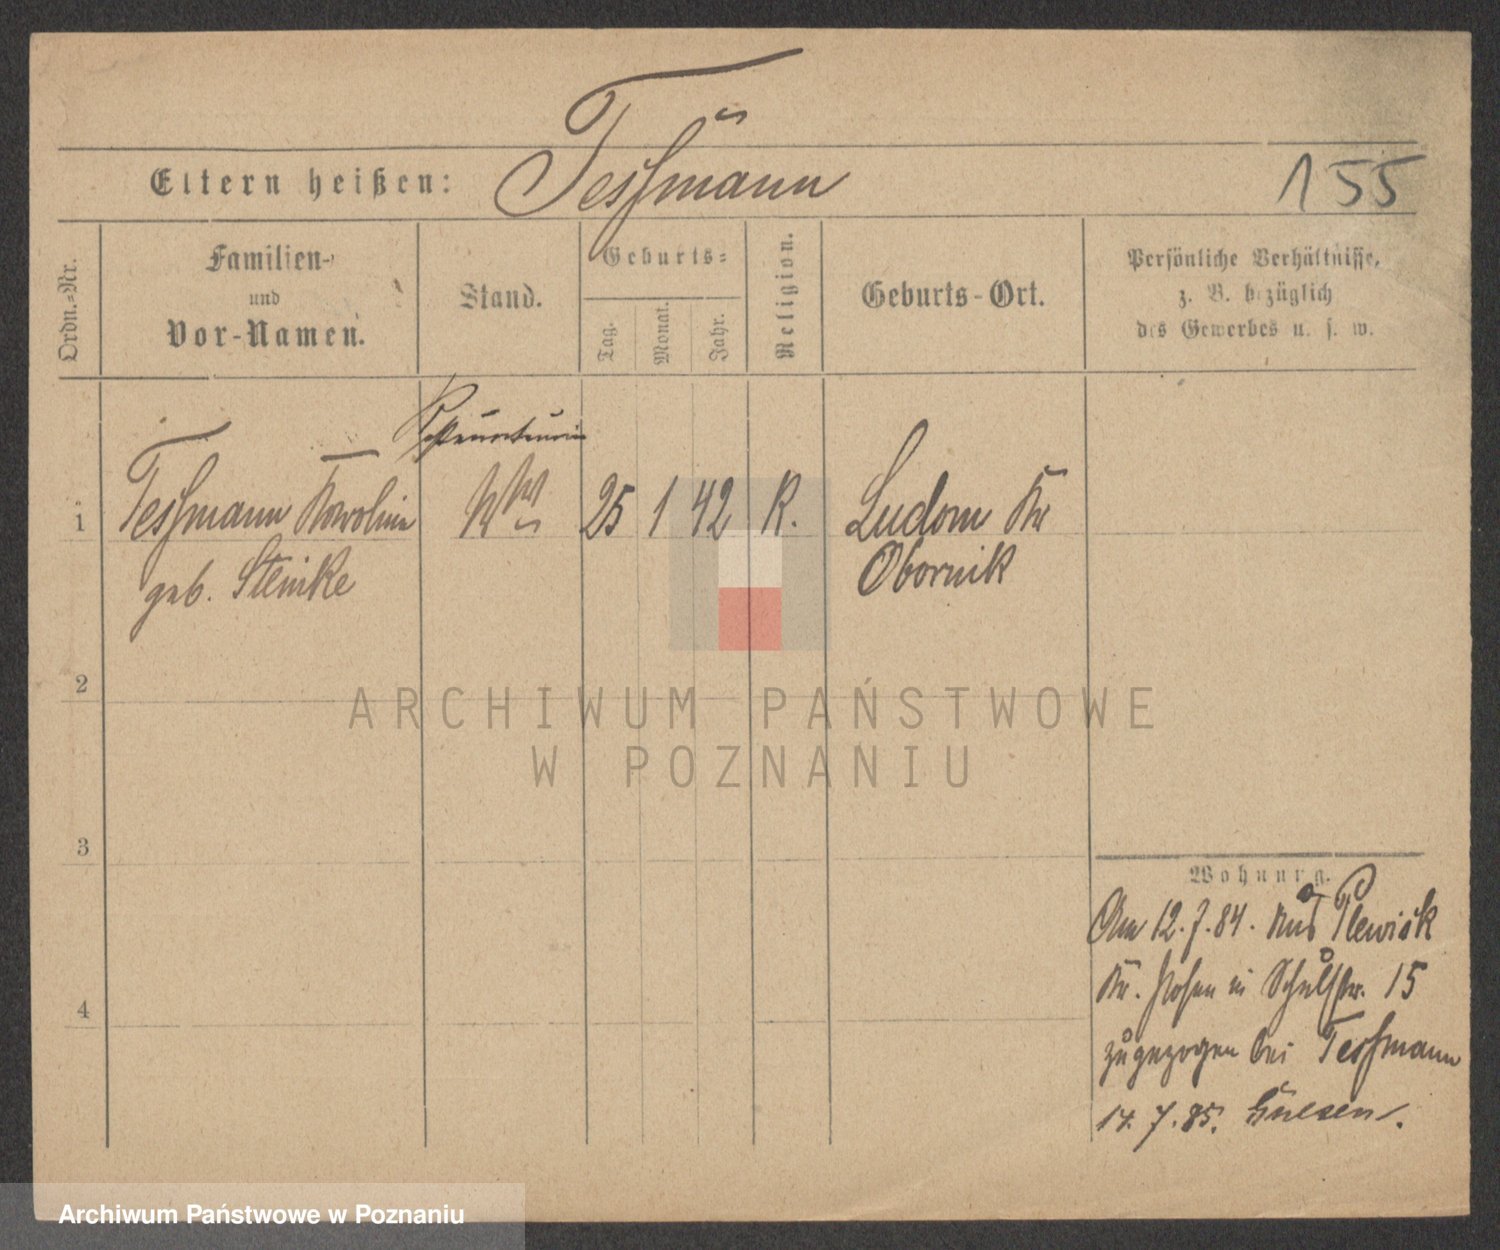 Teſsmann
Eltern heißen:
155
Ordn.=Nr.
Familien-
und
Vor-Namen.
Stand.
Geburts=
Tag.
Monat.
Jahr.
Religion.
Geburts-Ort.
Persönliche Verhältnisse,
z. B. bezüglich
des Gewerbes u. s. w.
1
Teſsmann Karoline
geb. Steinke
25 1 42 K.
Ludom Kr
Obornik
2
3
4
Wohnung.
Am 12.7.84. aus Plewisk
Kr. Posen in Schulstr. 15
zugezogen bei Teſsmann
14.7.85. Gnesen.
ARCHIWUM PAŃSTWOWE
W POZNANIU
Archiwum Państwowe w Poznaniu